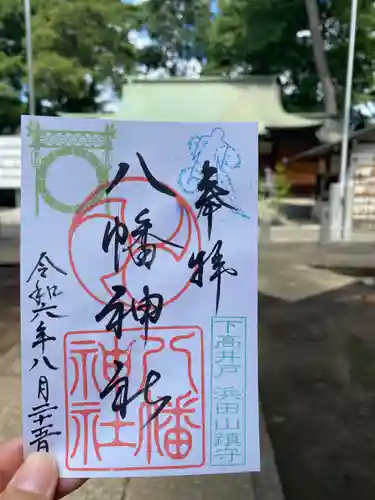 奉拝
八幡神社
下高井戸 浜田山鎮守
八幡
神社
令和六年八月二十五日